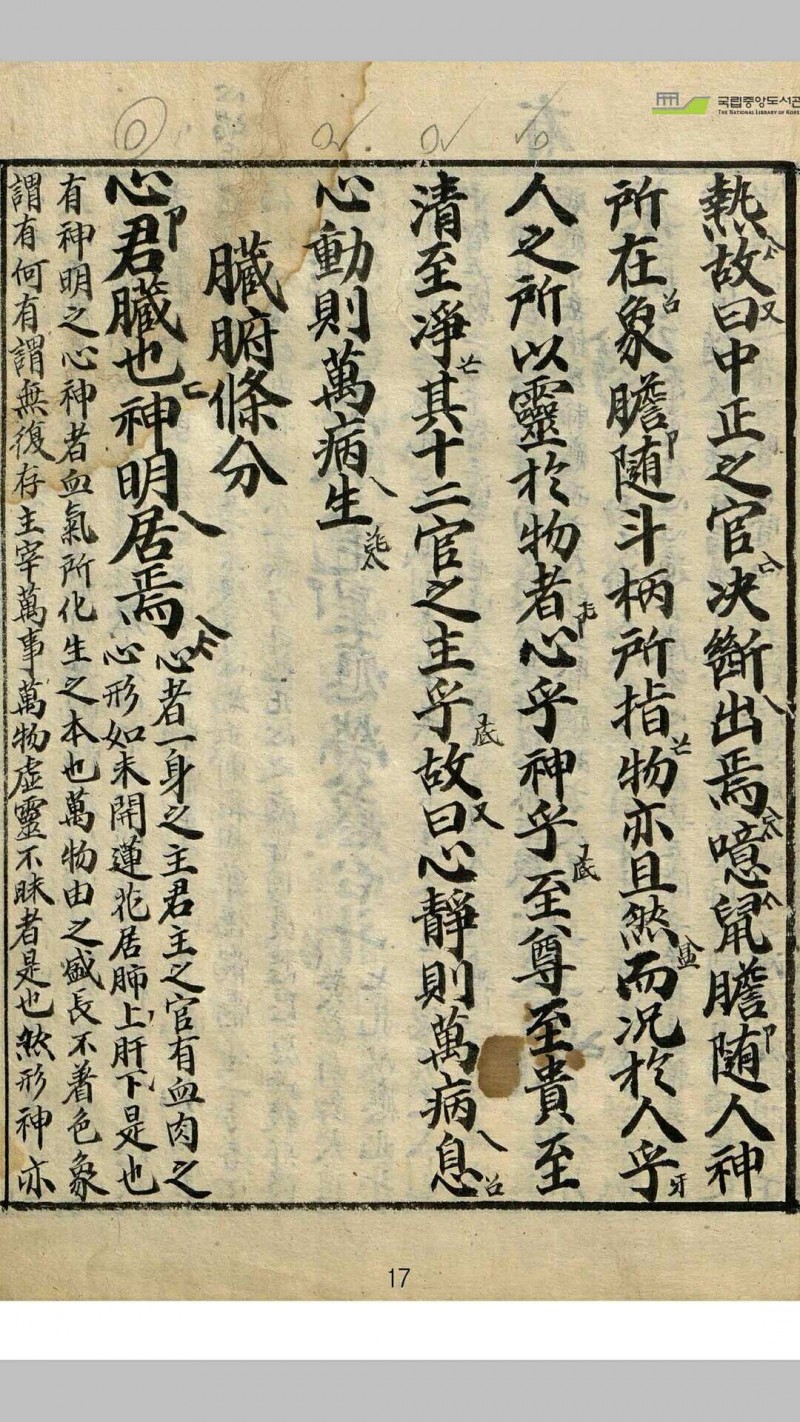 국립중앙도서관
THE NATIONAL LIBRARY OF KOREA
熱故曰中正之官决斷出焉噫鼠膽随人神
所在象膽随斗柄所指物亦且然而况於人乎
人之所以靈於物者心乎神乎至尊至貴至
清至淨其十二官之主乎故曰心靜則萬病息
心動則萬病生
臟腑條分
心君臟也神明居焉
心者一身之主君主之官有血肉之
心形如未開蓮花居肺上肝下是也
有神明之心神者血氣所化生之本也萬物由之盛長不著色象
謂有何有謂無復存主宰萬事萬物虛靈不昧者是也然形神亦
17